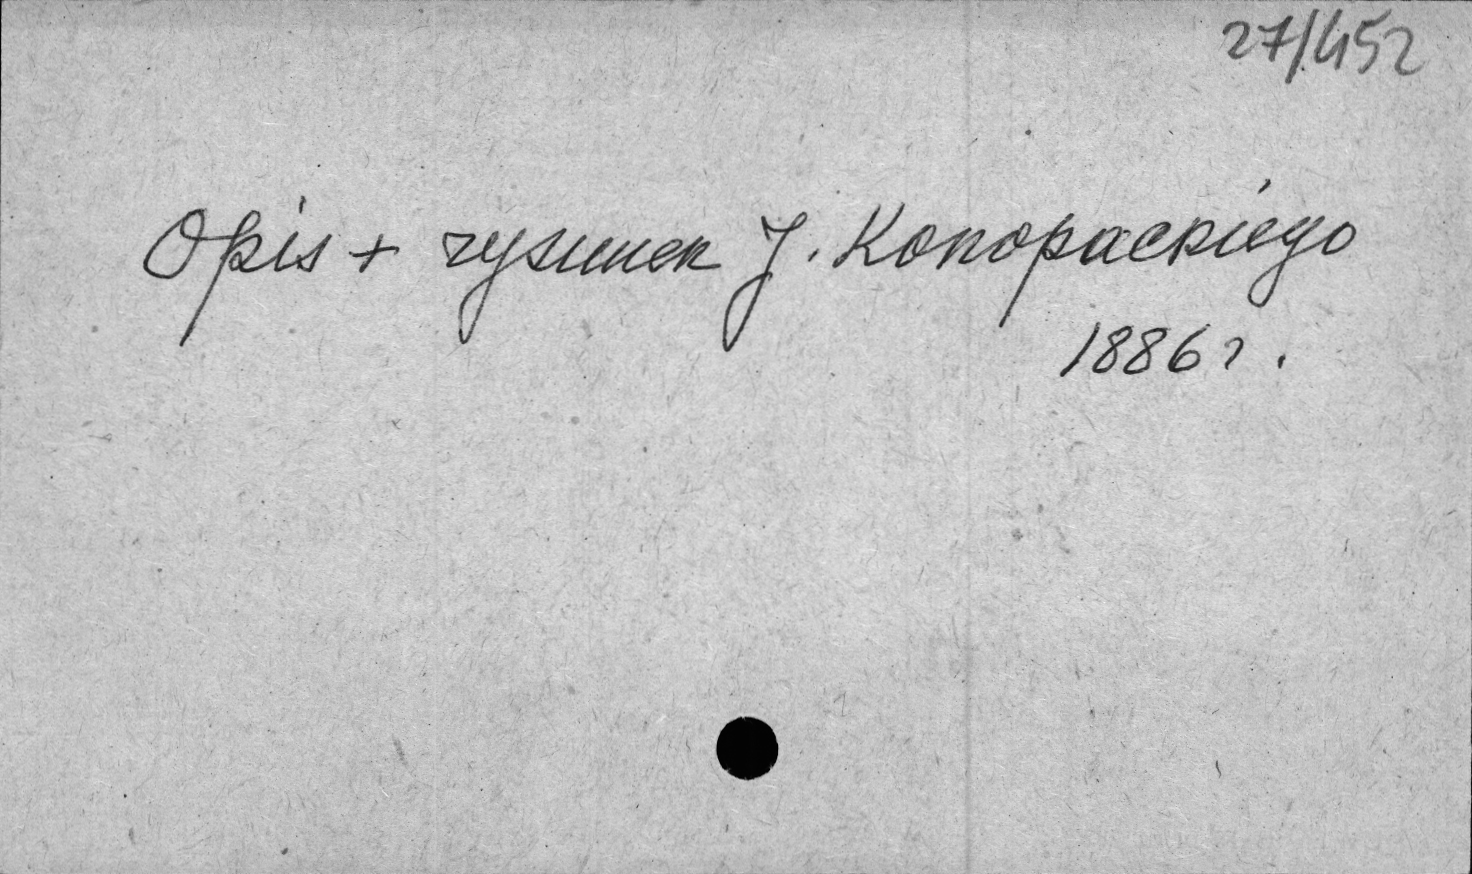 27/452
Opis + rysunek J. Konopackiego
1886 r.